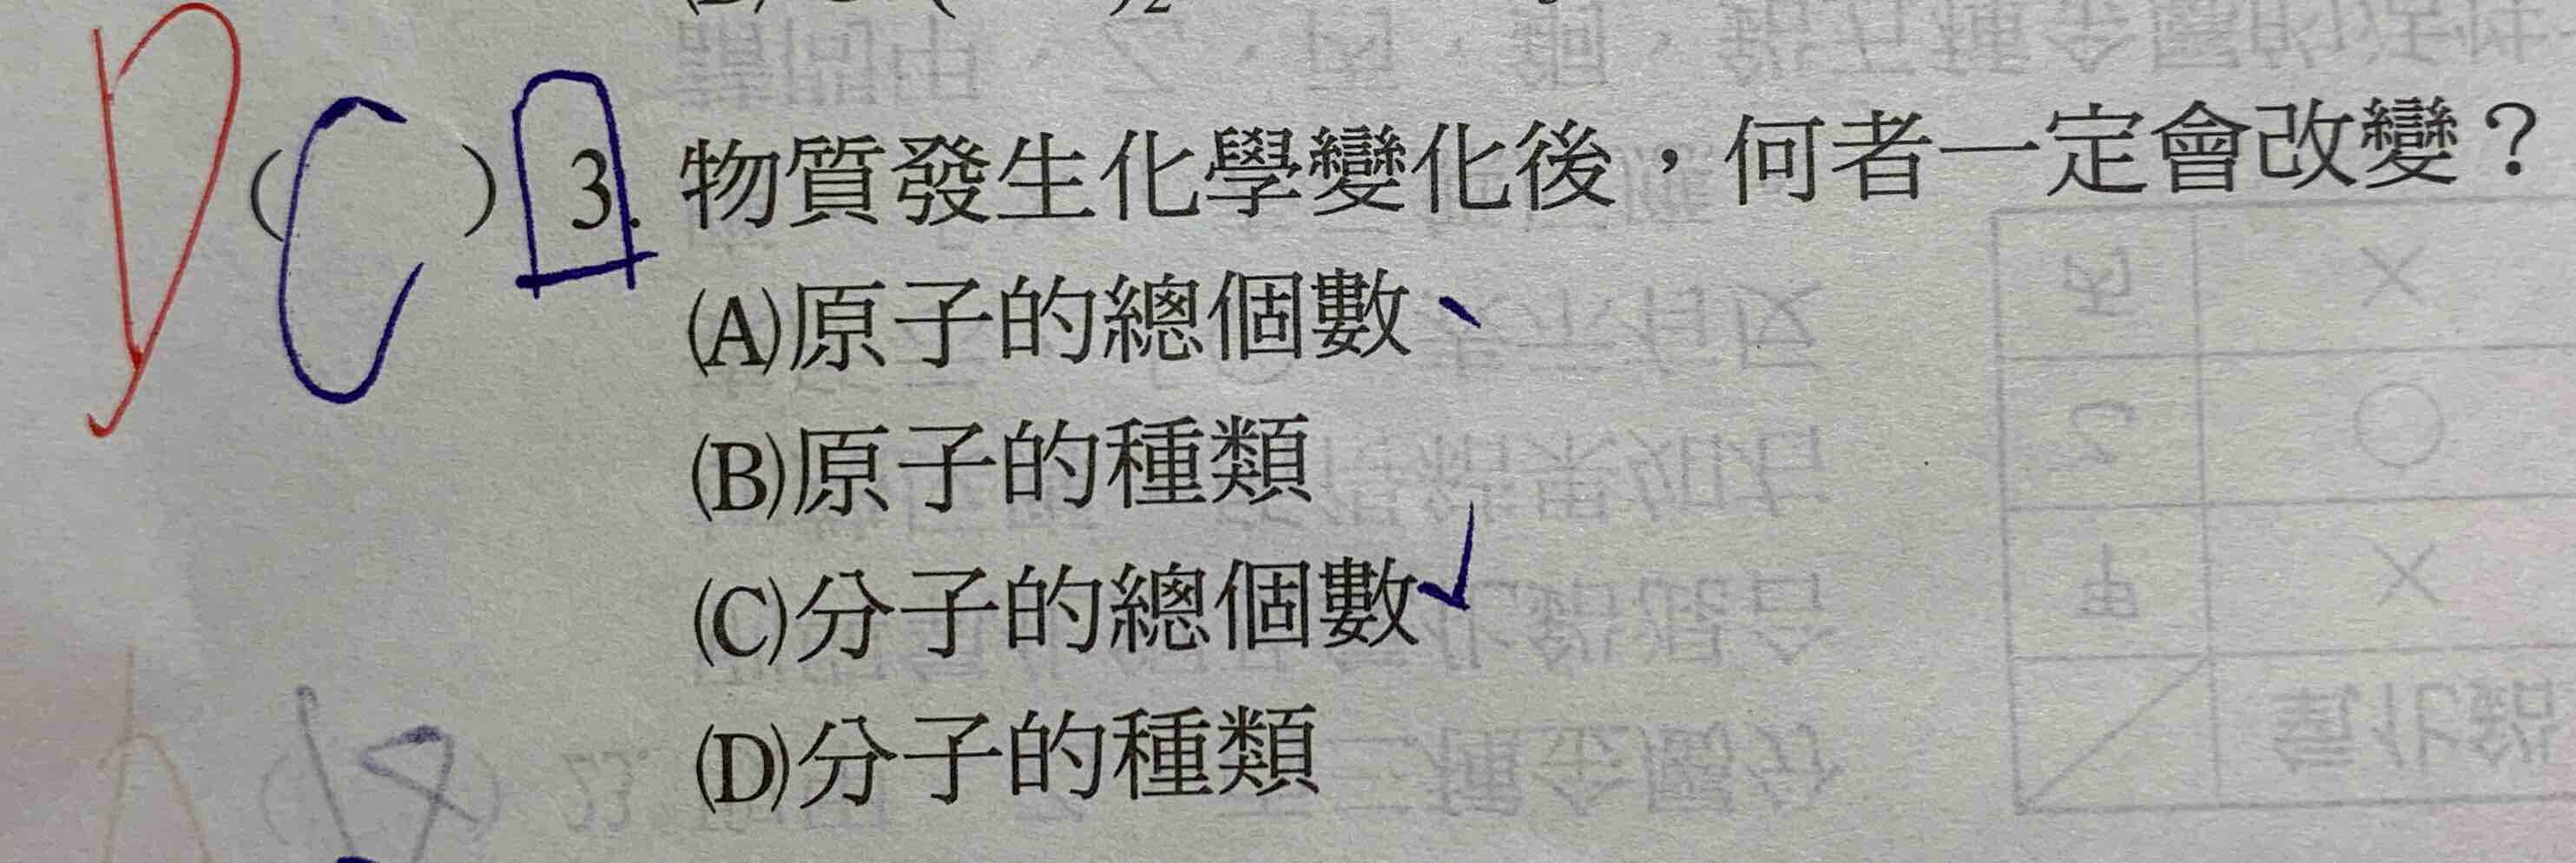 D
( C ) 3. 物質發生化學變化後,何者一定會改變?
(A)原子的總個數
(B)原子的種類
(C)分子的總個數✓
(D)分子的種類